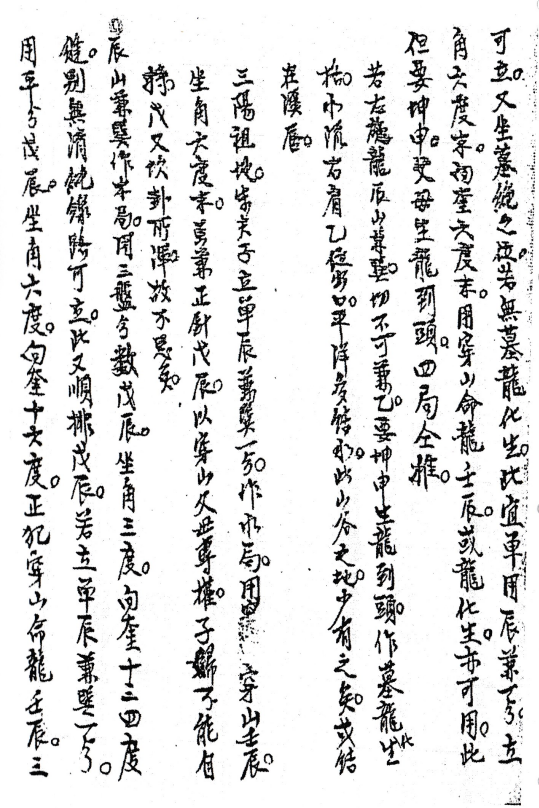 可立。又坐墓絶之位。若無墓龍化生。此宜單用辰兼一分。立
角六度末。向奎六度末。用穿山命龍壬辰。或龍化生。亦可用。此
但要坤申。父母生龍到頭。四局仝推。
若左旋龍辰山兼巽。切不可兼乙。要坤申生龍到頭。作墓龍化生
格。水流右肩乙位出口。平洋多結水。此山谷之地。少有之矣。或結
在溪唇。
三陽祖地。朱夫子立單辰兼巽一分。作水局。用 穿山壬辰。
坐角六度末。莫兼正針戊辰。以穿山父母專權。子婦不能自
辰山兼巽作本局。用三盤分數戊辰。坐角三度。向奎十三四度
縫。別無清純線路可立。此又順排戊辰。若立單辰兼巽一分。
用平分戊辰。坐角六度。向奎十六度。正犯穿山命龍壬辰。三